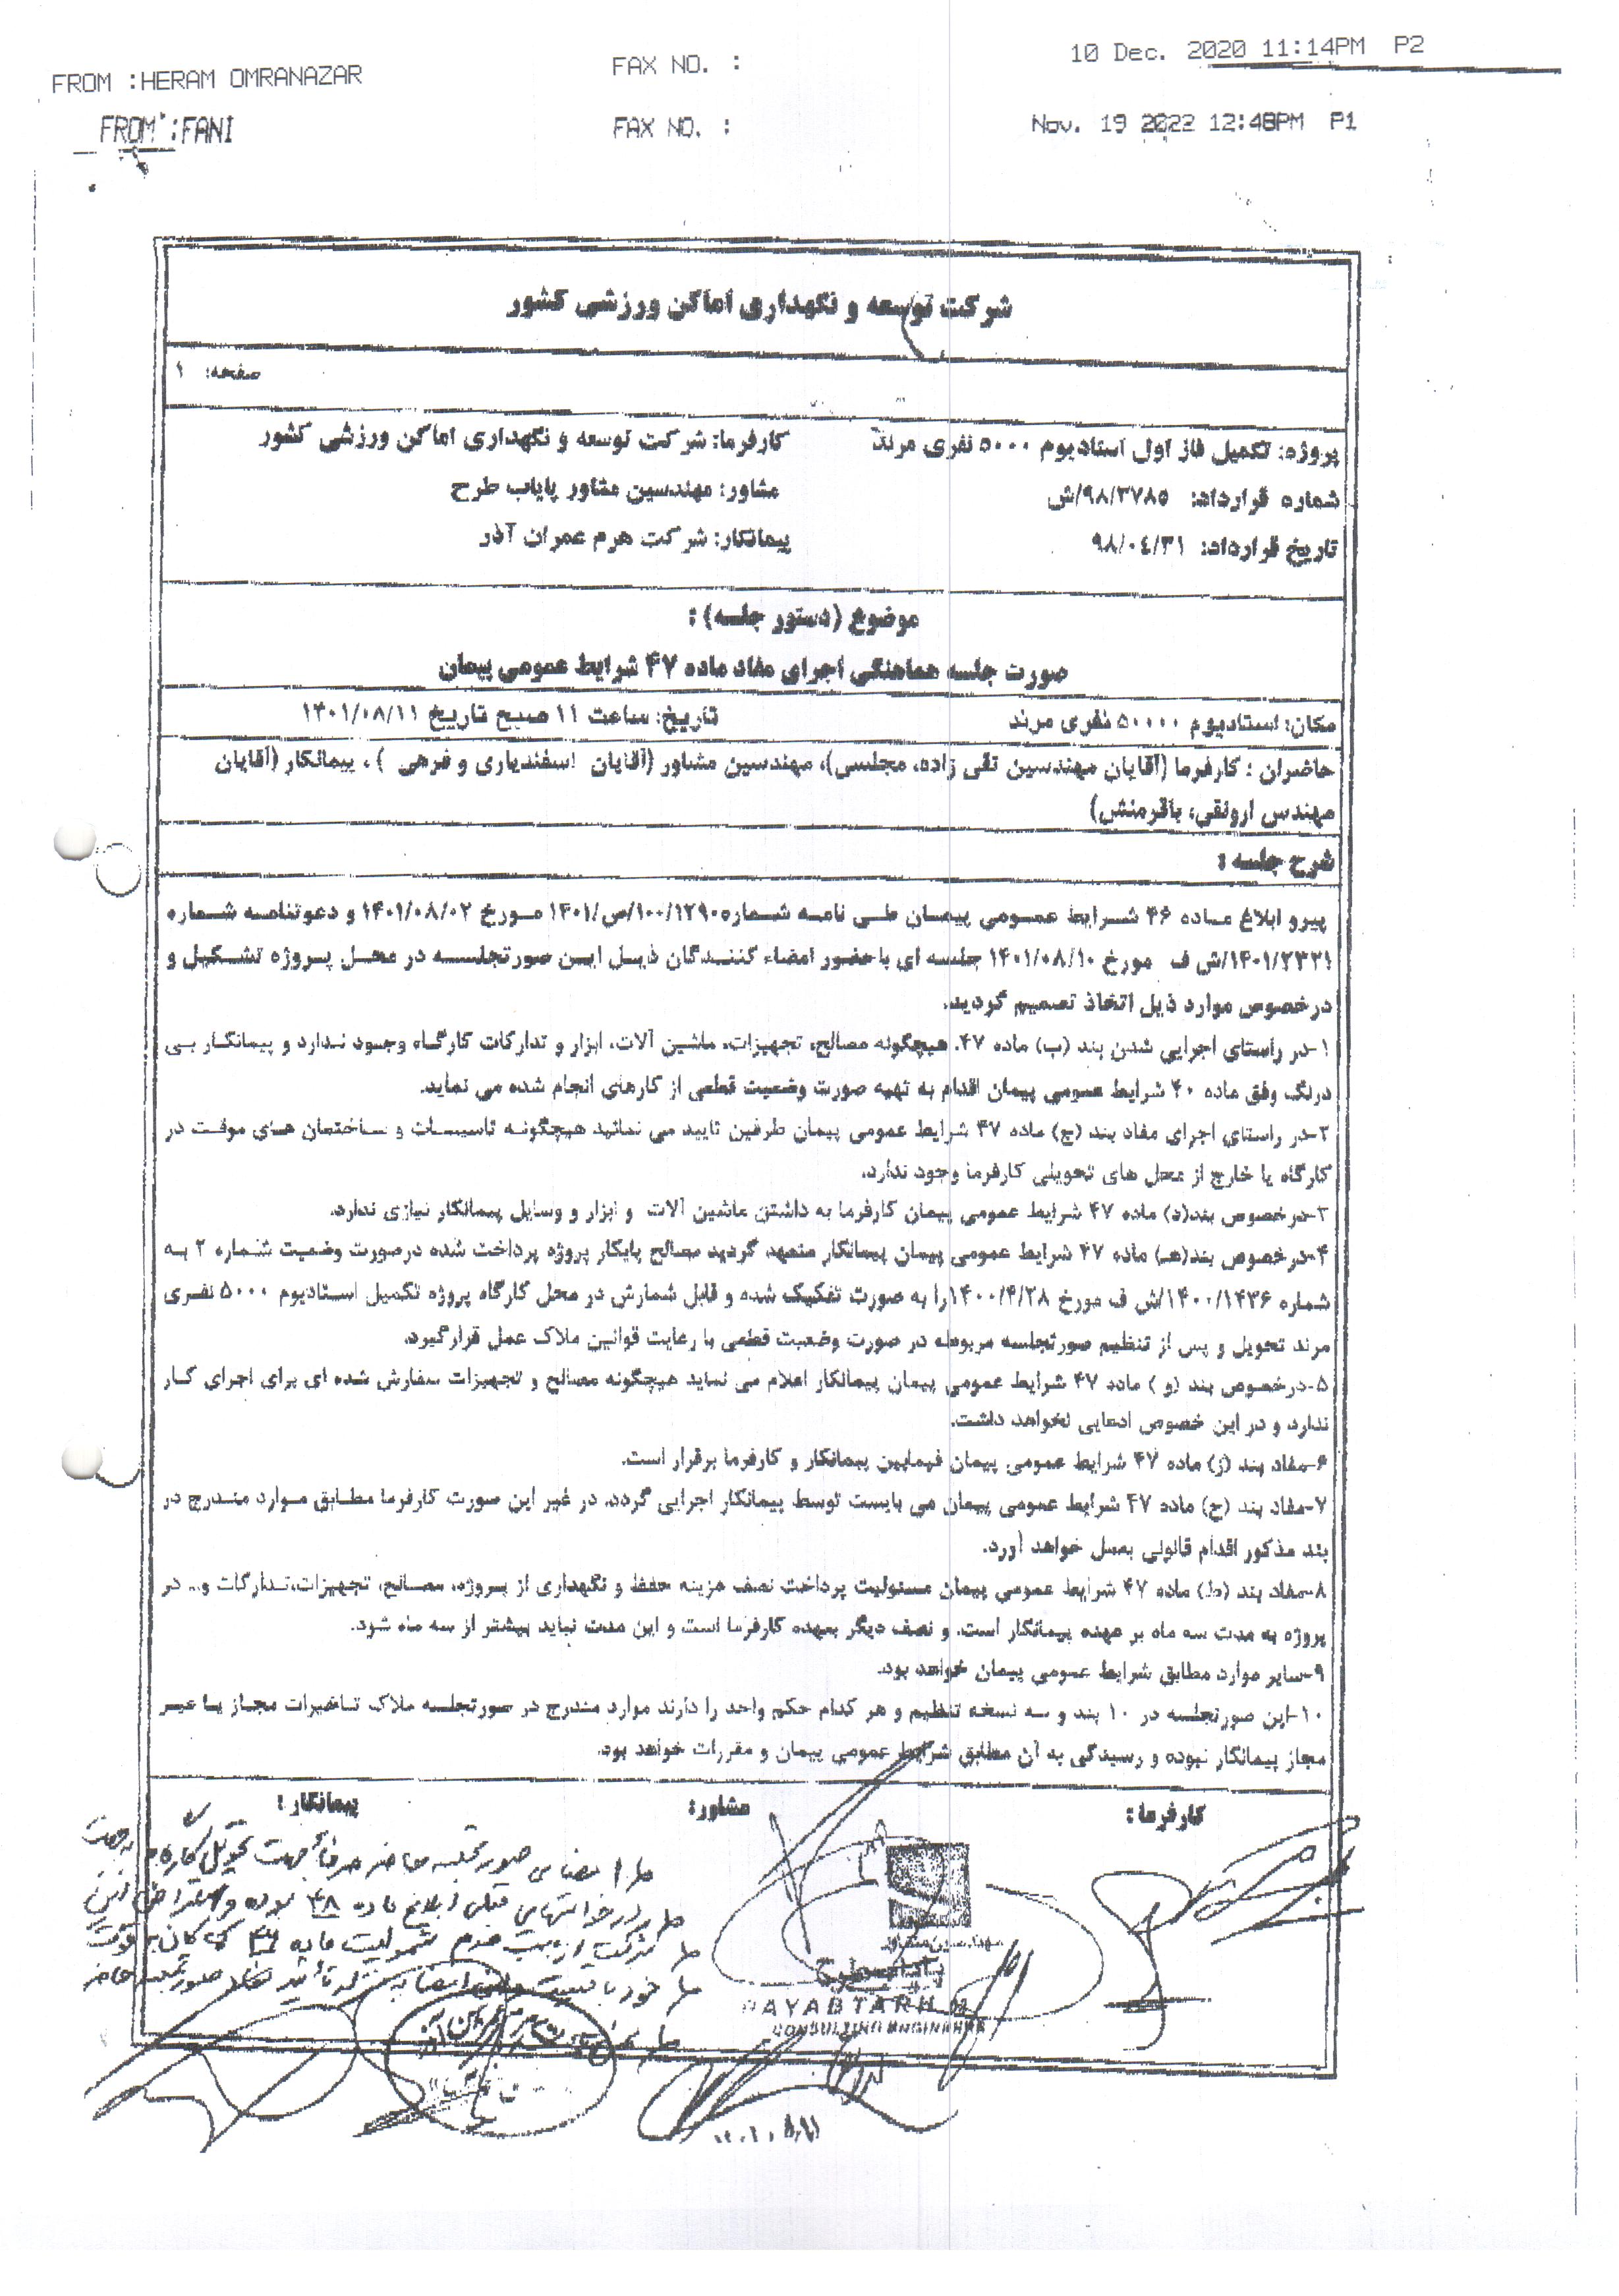 FROM :HERAM OMRANAZAR FAX NO. : 10 Dec. 2020 11:14PM P2
FROM :FANI FAX NO. : Nov. 19 2022 12:48PM P1
شرکت توسعه و نگهداری اماکن ورزشی کشور
صفحه: ۱
پروژه: تکمیل فاز اول استادیوم ۵۰۰۰ نفری مرند کارفرما: شرکت توسعه و نگهداری اماکن ورزشی کشور
شماره قرارداد: ۹۸/۳۷۸۵/ش مشاور: مهندسین مشاور پایاب طرح
تاریخ قرارداد: ۹۸/۰٤/۳۱ پیمانکار: شرکت هرم عمران آذر
موضوع (دستور جلسه) :
صورت جلسه هماهنگی اجرای مفاد ماده ۴۷ شرایط عمومی پیمان
مکان: استادیوم ۵۰۰۰۰ نفری مرند تاریخ: ساعت ۱۱ صبح تاریخ ۱۴۰۱/۰۸/۱۱
حاضران : کارفرما (آقایان مهندسین تقی زاده، مجلسی)، مهندسین مشاور (آقایان اسفندیاری و فرهی ) ، پیمانکار (آقایان
مهندس ارونقی، باقرمنش)
شرح جلسه :
پیرو ابلاغ ماده ۴۶ شرایط عمومی پیمان طی نامه شماره ۱۴۰۱/ص/۱۰۰/۱۲۹۰ مورخ ۱۴۰۱/۰۸/۰۲ و دعوتنامه شماره
۱۴۰۱/۲۳۲۱/ش ف مورخ ۱۴۰۱/۰۸/۱۰ جلسه ای با حضور امضاء کنندگان ذیل این صورتجلسه در محل پروژه تشکیل و
درخصوص موارد ذیل اتخاذ تصمیم گردید.
۱-در راستای اجرایی شدن بند (ب) ماده ۴۷. هیچگونه مصالح، تجهیزات، ماشین آلات، ابزار و تدارکات کارگاه وجود ندارد و پیمانکار بی
درنگ وفق ماده ۴۰ شرایط عمومی پیمان اقدام به تهیه صورت وضعیت قطعی از کارهای انجام شده می نماید.
۲-در راستای اجرای مفاد بند (ج) ماده ۴۷ شرایط عمومی پیمان طرفین تایید می نمائید هیچگونه تاسیسات و ساختمان های موقت در
کارگاه یا خارج از محل های تحویلی کارفرما وجود ندارد.
۳-درخصوص بند(د) ماده ۴۷ شرایط عمومی پیمان کارفرما به داشتن ماشین آلات و ابزار و وسایل پیمانکار نیازی ندارد.
۴-درخصوص بند(هـ) ماده ۴۷ شرایط عمومی پیمان پیمانکار متعهد گردید مصالح پایکار پروژه پرداخت شده درصورت وضعیت شماره ۲ به
شماره ۱۴۰۰/۱۴۳۶/ش ف مورخ ۱۴۰۰/۴/۲۸را به صورت تفکیک شده و قابل شمارش در محل کارگاه پروژه تکمیل استادیوم ۵۰۰۰ نفری
مرند تحویل و پس از تنظیم صورتجلسه مربوطه در صورت وضعیت قطعی با رعایت قوانین ملاک عمل قرارگیرد.
۵-درخصوص بند (و ) ماده ۴۷ شرایط عمومی پیمان پیمانکار اعلام می نماید هیچگونه مصالح و تجهیزات سفارش شده ای برای اجرای کار
ندارد و در این خصوص ادعایی نخواهد داشت.
۶-مفاد بند (ز) ماده ۴۷ شرایط عمومی پیمان فیمابین پیمانکار و کارفرما برقرار است.
۷-مفاد بند (ح) ماده ۴۷ شرایط عمومی پیمان می بایست توسط پیمانکار اجرایی گردد، در غیر این صورت کارفرما مطابق موارد مندرج در
بند مذکور اقدام قانونی بعمل خواهد آورد.
۸-مفاد بند (ط) ماده ۴۷ شرایط عمومی پیمان مسئولیت پرداخت نصف هزینه حفظ و نگهداری از پروژه، مصالح، تجهیزات،تدارکات و.. در
پروژه به مدت سه ماه بر عهده پیمانکار است. و نصف دیگر بعهده کارفرما است و این مدت نباید بیشتر از سه ماه شود.
۹-سایر موارد مطابق شرایط عمومی پیمان خواهد بود.
۱۰-این صورتجلسه در ۱۰ بند و سه نسخه تنظیم و هر کدام حکم واحد را دارند موارد مندرج در صورتجلسه ملاک تاخیرات مجاز یا غیر
مجاز پیمانکار نبوده و رسیدگی به آن مطابق شرایط عمومی پیمان و مقررات خواهد بود.
کارفرما: مشاور: پیمانکار:
امضای صورتجلسه حاضر صرفاً جهت تحویل کارگاه
درخواستهای قبلی ابلاغ ماده ۴۸ بوده و اعتراض این
شرکت عدم شمولیت ماده ۴۶ کماکان به قوت
خود صورتجلسه حاضر
مهندسین مشاور
پایاب طرح
PAYAB TARH
CONSULTING ENGINEERS